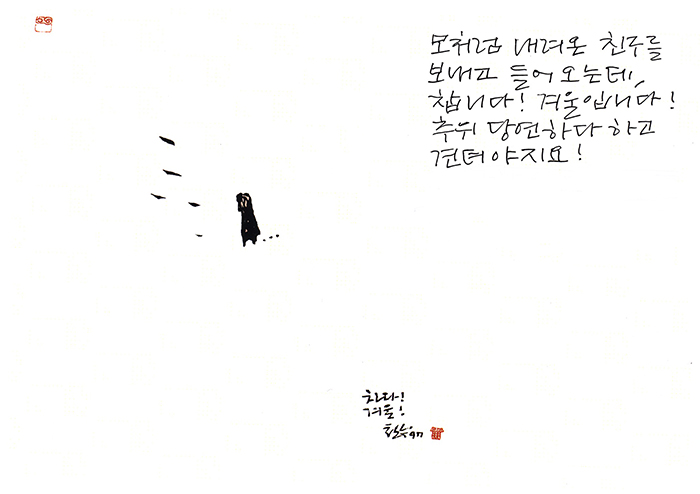 모처럼 내려온 친구를
보내고 들어 오는데,
찹니다! 겨울입니다!
추위 당연하다 하고
견뎌야지요!
차다!
겨울!
철수 97